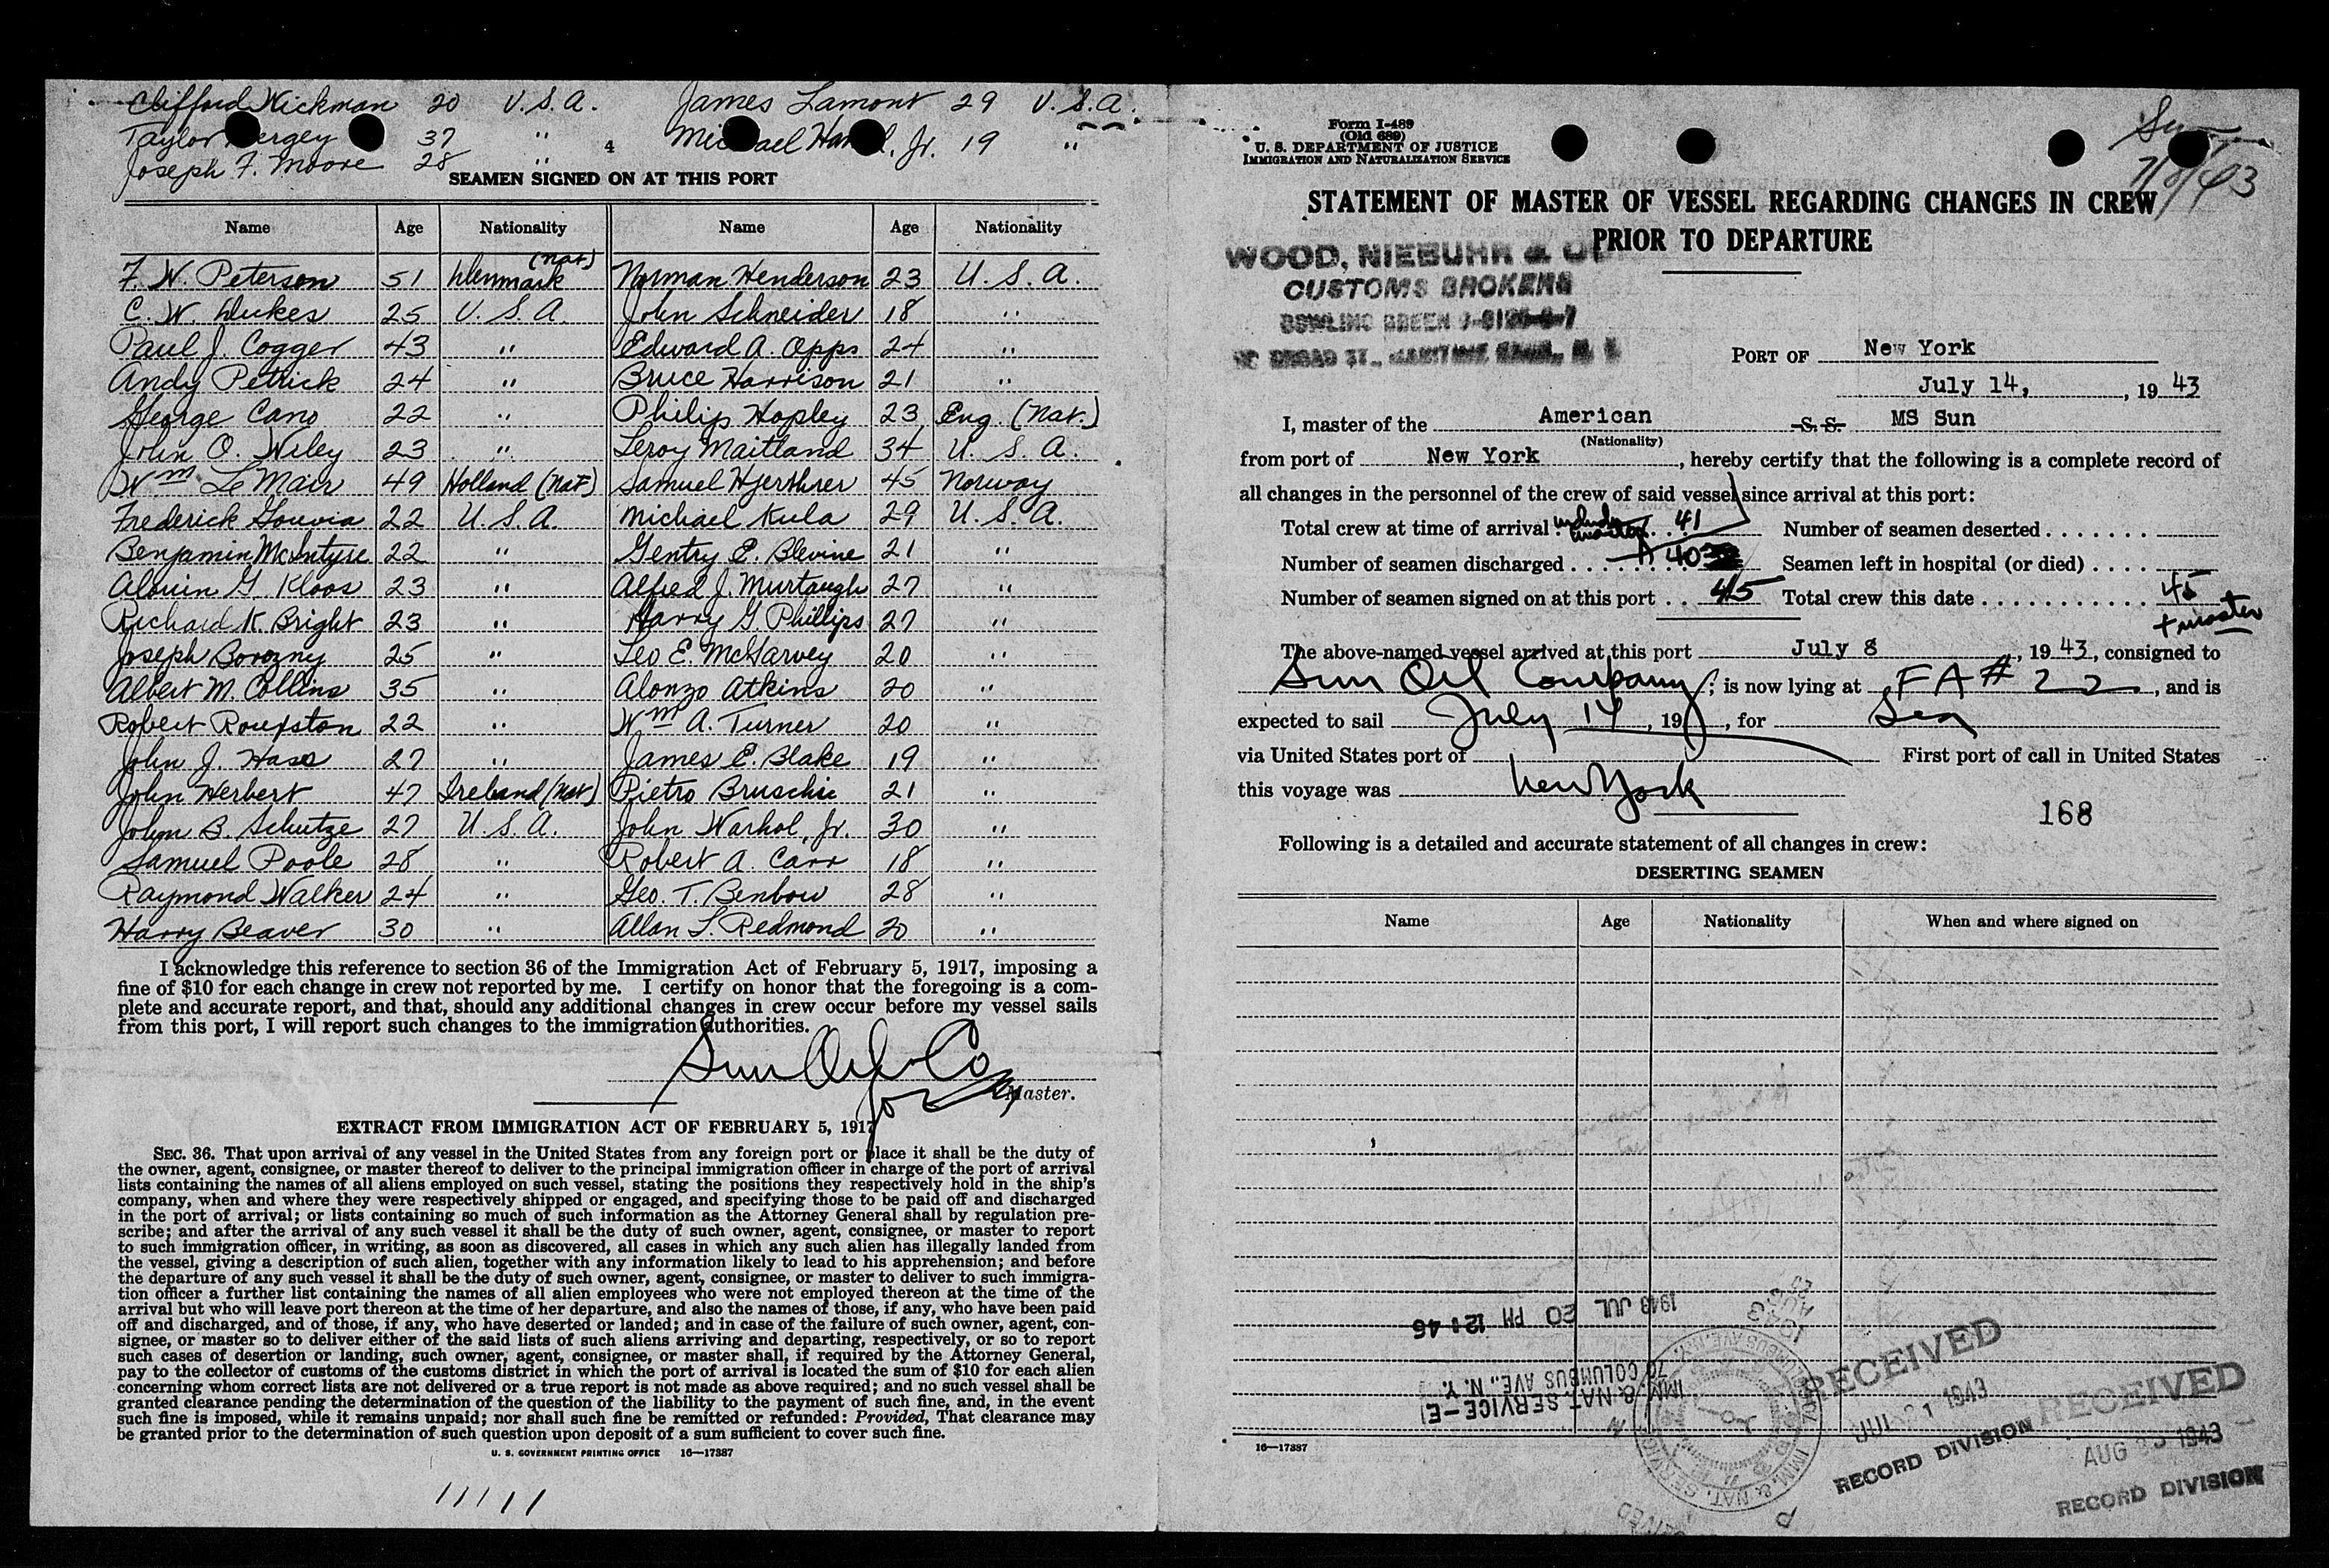 Clifford Wickman 20 U.S.A. James Lamont 29 U.S.A.
Taylor 37 " Jr. 19 "
Joseph F. Moore 28 "
4
SEAMEN SIGNED ON AT THIS PORT
Name Age Nationality Name Age Nationality
F. W. Peterson 51 Denmark (nat) Norman Henderson 23 U. S. A.
C. W. Dukes 25 U. S. A. John Schneider 18 "
Paul J. Cogger 43 " Edward A. Apps 24 "
Andy Petrick 24 " Bruce Harrison 21 "
George Cano 22 " Philip Hopley 23 Eng. (Nat.)
John O. Wiley 23 " Leroy Maitland 34 U. S. A.
Wm Le Mair 49 Holland (Nat) Samuel Hjerthrer 45 Norway
Frederick Gouvia 22 U. S. A. Michael Kula 29 U. S. A.
Benjamin McIntyre 22 " Gentry E. Blevine 21 "
Alouin G. Kloos 23 " Alfred J. Murtaugh 27 "
Richard K. Bright 23 " Harry G. Phillips 27 "
Joseph Borozny 25 " Leo E. McGarvey 20 "
Albert M. Collins 35 " Alonzo Atkins 20 "
Robert Roupston 22 " Wm A. Turner 20 "
John J. Hass 27 " James E. Blake 19 "
John Herbert 47 Ireland (Nat) Pietro Bruschi 21 "
John B. Schutze 27 U. S. A. John Warhol, Jr. 30 "
Samuel Poole 28 " Robert A. Carr 18 "
Raymond Walker 24 " Geo. T. Benbow 28 "
Harry Beaver 30 " Allan L. Redmond 20 "
I acknowledge this reference to section 36 of the Immigration Act of February 5, 1917, imposing a
fine of $10 for each change in crew not reported by me. I certify on honor that the foregoing is a com-
plete and accurate report, and that, should any additional changes in crew occur before my vessel sails
from this port, I will report such changes to the immigration authorities.
Sun Oil Co
Master.
EXTRACT FROM IMMIGRATION ACT OF FEBRUARY 5, 1917
SEC. 36. That upon arrival of any vessel in the United States from any foreign port or place it shall be the duty of
the owner, agent, consignee, or master thereof to deliver to the principal immigration officer in charge of the port of arrival
lists containing the names of all aliens employed on such vessel, stating the positions they respectively hold in the ship's
company, when and where they were respectively shipped or engaged, and specifying those to be paid off and discharged
in the port of arrival; or lists containing so much of such information as the Attorney General shall by regulation pre-
scribe; and after the arrival of any such vessel it shall be the duty of such owner, agent, consignee, or master to report
to such immigration officer, in writing, as soon as discovered, all cases in which any such alien has illegally landed from
the vessel, giving a description of such alien, together with any information likely to lead to his apprehension; and before
the departure of any such vessel it shall be the duty of such owner, agent, consignee, or master to deliver to such immigra-
tion officer a further list containing the names of all alien employees who were not employed thereon at the time of the
arrival but who will leave port thereon at the time of her departure, and also the names of those, if any, who have been paid
off and discharged, and of those, if any, who have deserted or landed; and in case of the failure of such owner, agent, con-
signee, or master so to deliver either of the said lists of such aliens arriving and departing, respectively, or so to report
such cases of desertion or landing, such owner, agent, consignee, or master shall, if required by the Attorney General,
pay to the collector of customs of the customs district in which the port of arrival is located the sum of $10 for each alien
concerning whom correct lists are not delivered or a true report is not made as above required; and no such vessel shall be
granted clearance pending the determination of the question of the liability to the payment of such fine, and, in the event
such fine is imposed, while it remains unpaid; nor shall such fine be remitted or refunded: Provided, That clearance may
be granted prior to the determination of such question upon deposit of a sum sufficient to cover such fine.
U. S. GOVERNMENT PRINTING OFFICE 16—17387
Form I-489
(Old 689)
U. S. DEPARTMENT OF JUSTICE
IMMIGRATION AND NATURALIZATION SERVICE
7/8/43
STATEMENT OF MASTER OF VESSEL REGARDING CHANGES IN CREW
PRIOR TO DEPARTURE
WOOD, NIEBUHR &
CUSTOMS BROKERS
BOWLING GREEN
PORT OF New York
July 14, , 19 43
I, master of the American S. S. MS Sun
(Nationality)
from port of New York , hereby certify that the following is a complete record of
all changes in the personnel of the crew of said vessel since arrival at this port:
Total crew at time of arrival 41 Number of seamen deserted
Number of seamen discharged 40 Seamen left in hospital (or died)
Number of seamen signed on at this port 45 Total crew this date 45
+ master
The above-named vessel arrived at this port July 8 , 19 43, consigned to
Sun Oil Company ; is now lying at FA # 22 , and is
expected to sail July 14 , 19 , for Sea
via United States port of First port of call in United States
this voyage was New York
168
Following is a detailed and accurate statement of all changes in crew:
DESERTING SEAMEN
Name Age Nationality When and where signed on
1943 JUL 20 PM 12:46
& NAT. SERVICE-E
70 COLUMBUS AVE., N. Y.
RECEIVED
JUL 21 1943
RECORD DIVISION
RECEIVED
AUG 1943
RECORD DIVISION
16—17387